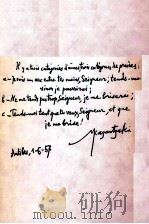 Il y a trois catégories d'âmes trois catégories de prières:
a - je suis un arc entre tes mains, Seigneur; tends-moi
sinon je pourrirai;
b - Ne me tends pas trop, Seigneur, je me briserai;
c - Tends-moi tant que tu veux, Seigneur, et que
je me brise!
Kazantzaki
Antibes, 1-6-57